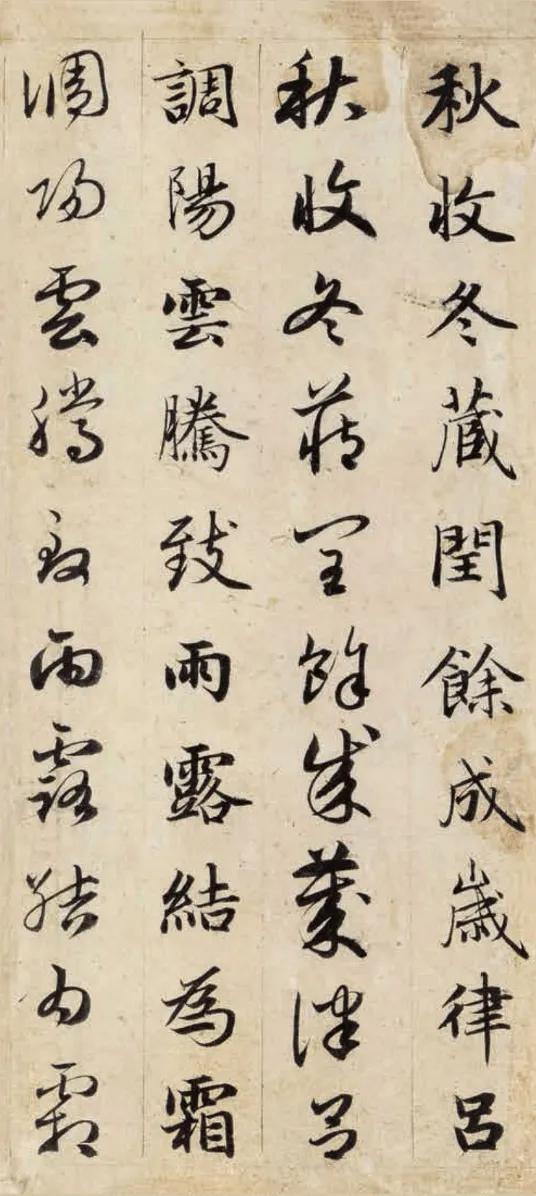 秋收冬藏閏餘成歲律呂
秋收冬藏閏餘成歲律呂
調陽雲騰致雨露結為霜
調陽雲騰致雨露結為霜